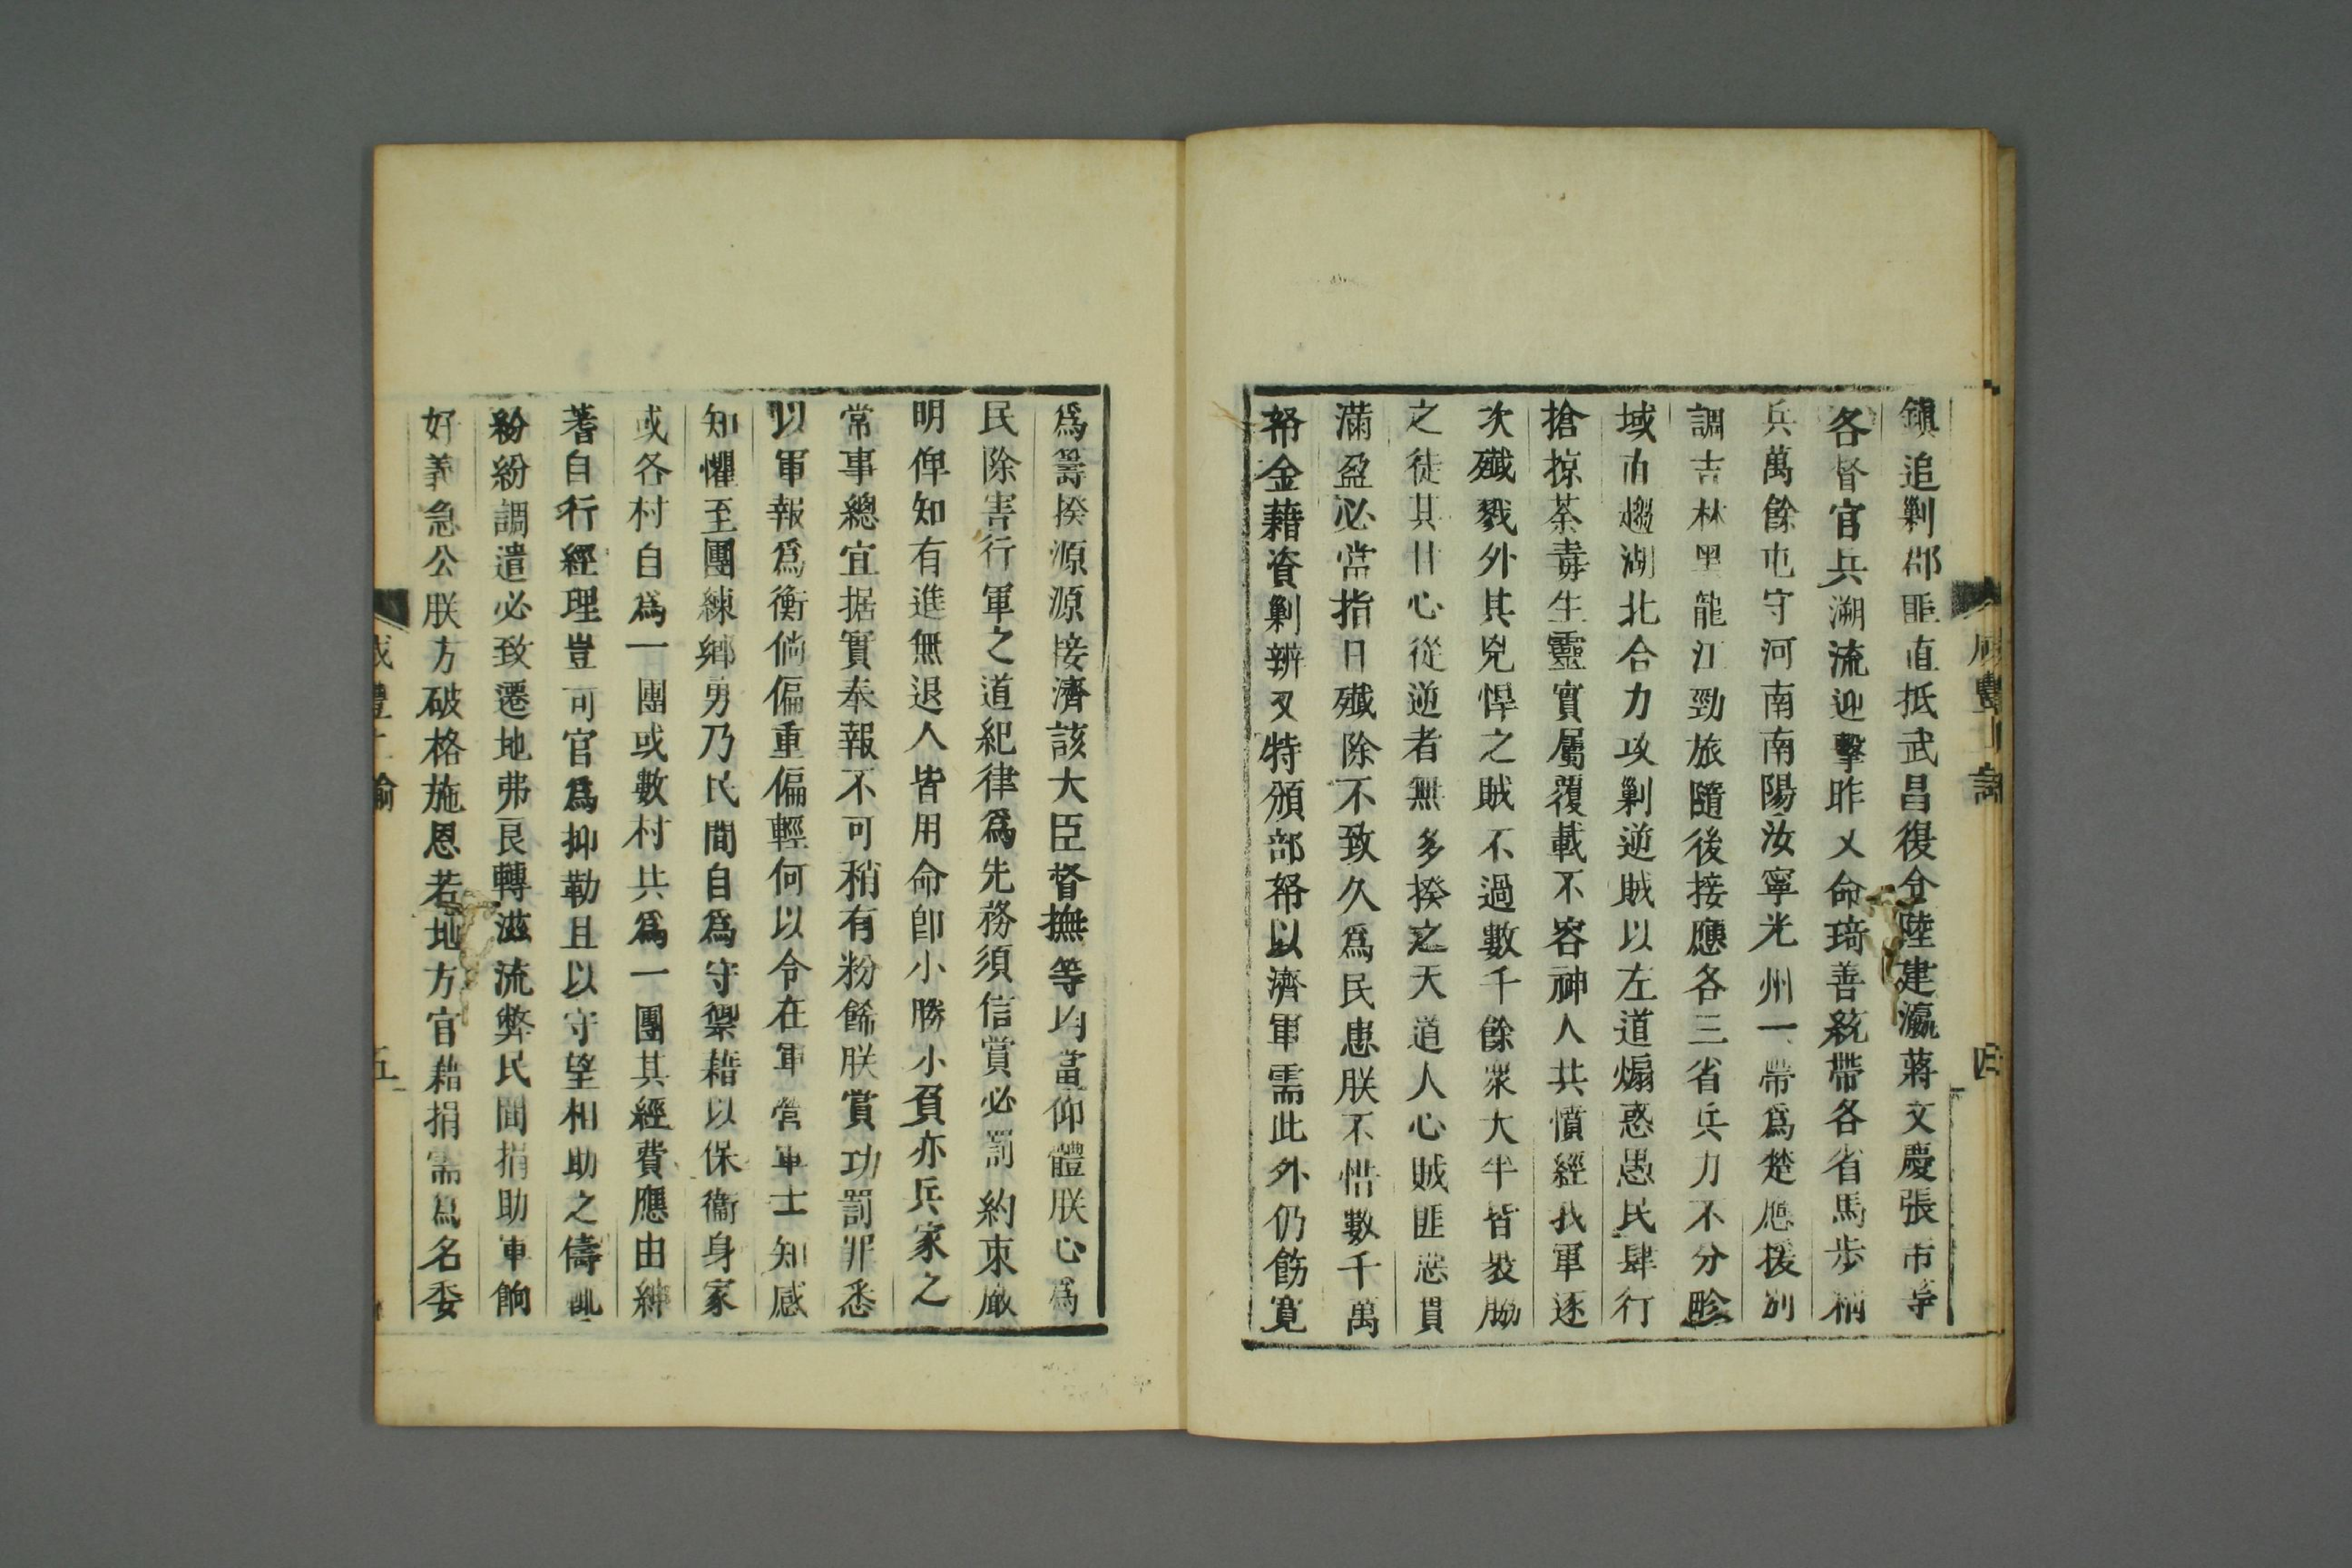 鎭追剿郡匪直抵武昌復令陸建瀛蔣文慶張芾等
各督官兵溯流迎擊昨乂命琦善統帶各省馬步精
兵萬餘屯守河南南陽汝寧光州一帶爲楚應援別
調吉林黑龍江勁旅隨後接應各三省兵力不分畛
域由趨湖北合力攻剿逆賊以左道煽惑愚民肆行
搶掠荼毒生靈實屬覆載不容神人共憤經我軍逐
次殲戮外其兇悍之賊不過數千餘衆大半皆裝脇
之徒其甘心從逆者無多揆之天道人心賊匪惡貫
滿盈必當指日殲除不致久爲民患朕不惜數千萬
帑金藉資剿辦又特頒部帑以濟軍需此外仍飭寬
咸豐上諭
四
爲籌撥源源接濟該大臣督撫等均當仰體朕心爲
民除害行軍之道紀律爲先務須信賞必罰約束嚴
明俾知有進無退人皆用命卽小勝小負亦兵家之
常事總宜据實奉報不可稍有粉餙朕賞功罰罪悉
以軍報爲衡倘偏重偏輕何以令在軍營軍士知感
知懼至團練鄉勇乃民間自爲守禦藉以保衞身家
或各村自爲一團或數村共爲一團其經費應由紳
耆自行經理豈可官爲抑勒且以守望相助之儔
紛紛調遣必致遷地弗良轉滋流弊民間捐助軍餉
好義急公朕方破格施恩若地方官藉捐需爲名委
咸豐上諭
五